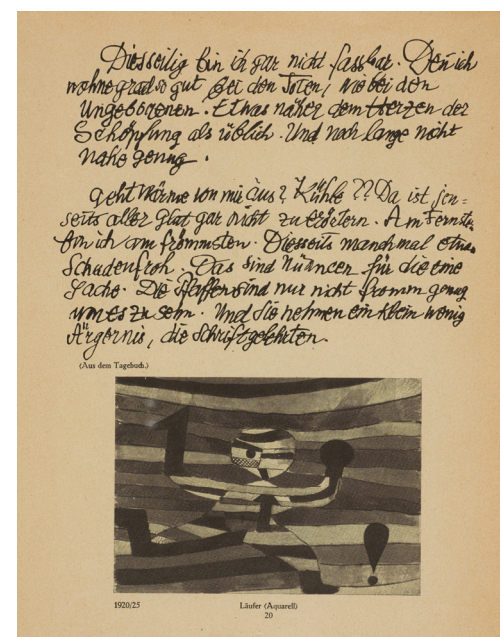 Diesseitig bin ich gar nicht fassbar. Denn ich
wohne grad so gut bei den Toten, wie bei den
Ungeborenen. Etwas näher dem Herzen der
Schöpfung als üblich. Und noch lange nicht
nahe genug.
Geht Wärme von mir aus? Kühle?? Da ist jen=
seits aller Glut gar nicht zu erörtern. Am Fernsten
bin ich am frömmsten. Diesseits manchmal etwas
Schadenfroh. Das sind Nüancen für die eine
Sache. Die Pfaffen sind nur nicht fromm genug
um es zu sehn. Und sie nehmen ein klein wenig
Ärgernis, die Schriftgelehrten.
(Aus dem Tagebuch.)
1920/25
Läufer (Aquarell)
20